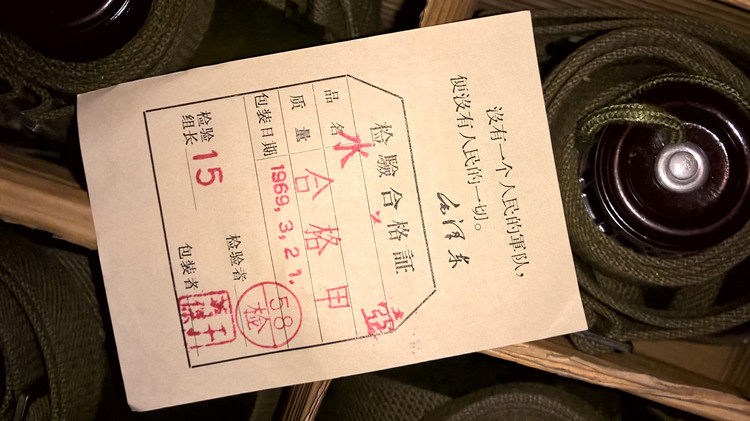 沒有一个人民的軍队，
便沒有人民的一切。
毛澤东
检驗合格証
品名 水壶
质量 合格甲
包装日期 1969.3.21.
检验组长 15
检验者 58 检
包装者